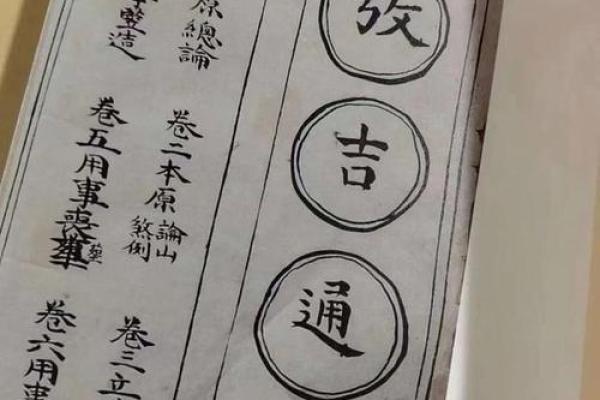 攷吉通
原總論
卷二本原論山煞例
卷三立
豎造
卷五用事喪葬
卷六用事